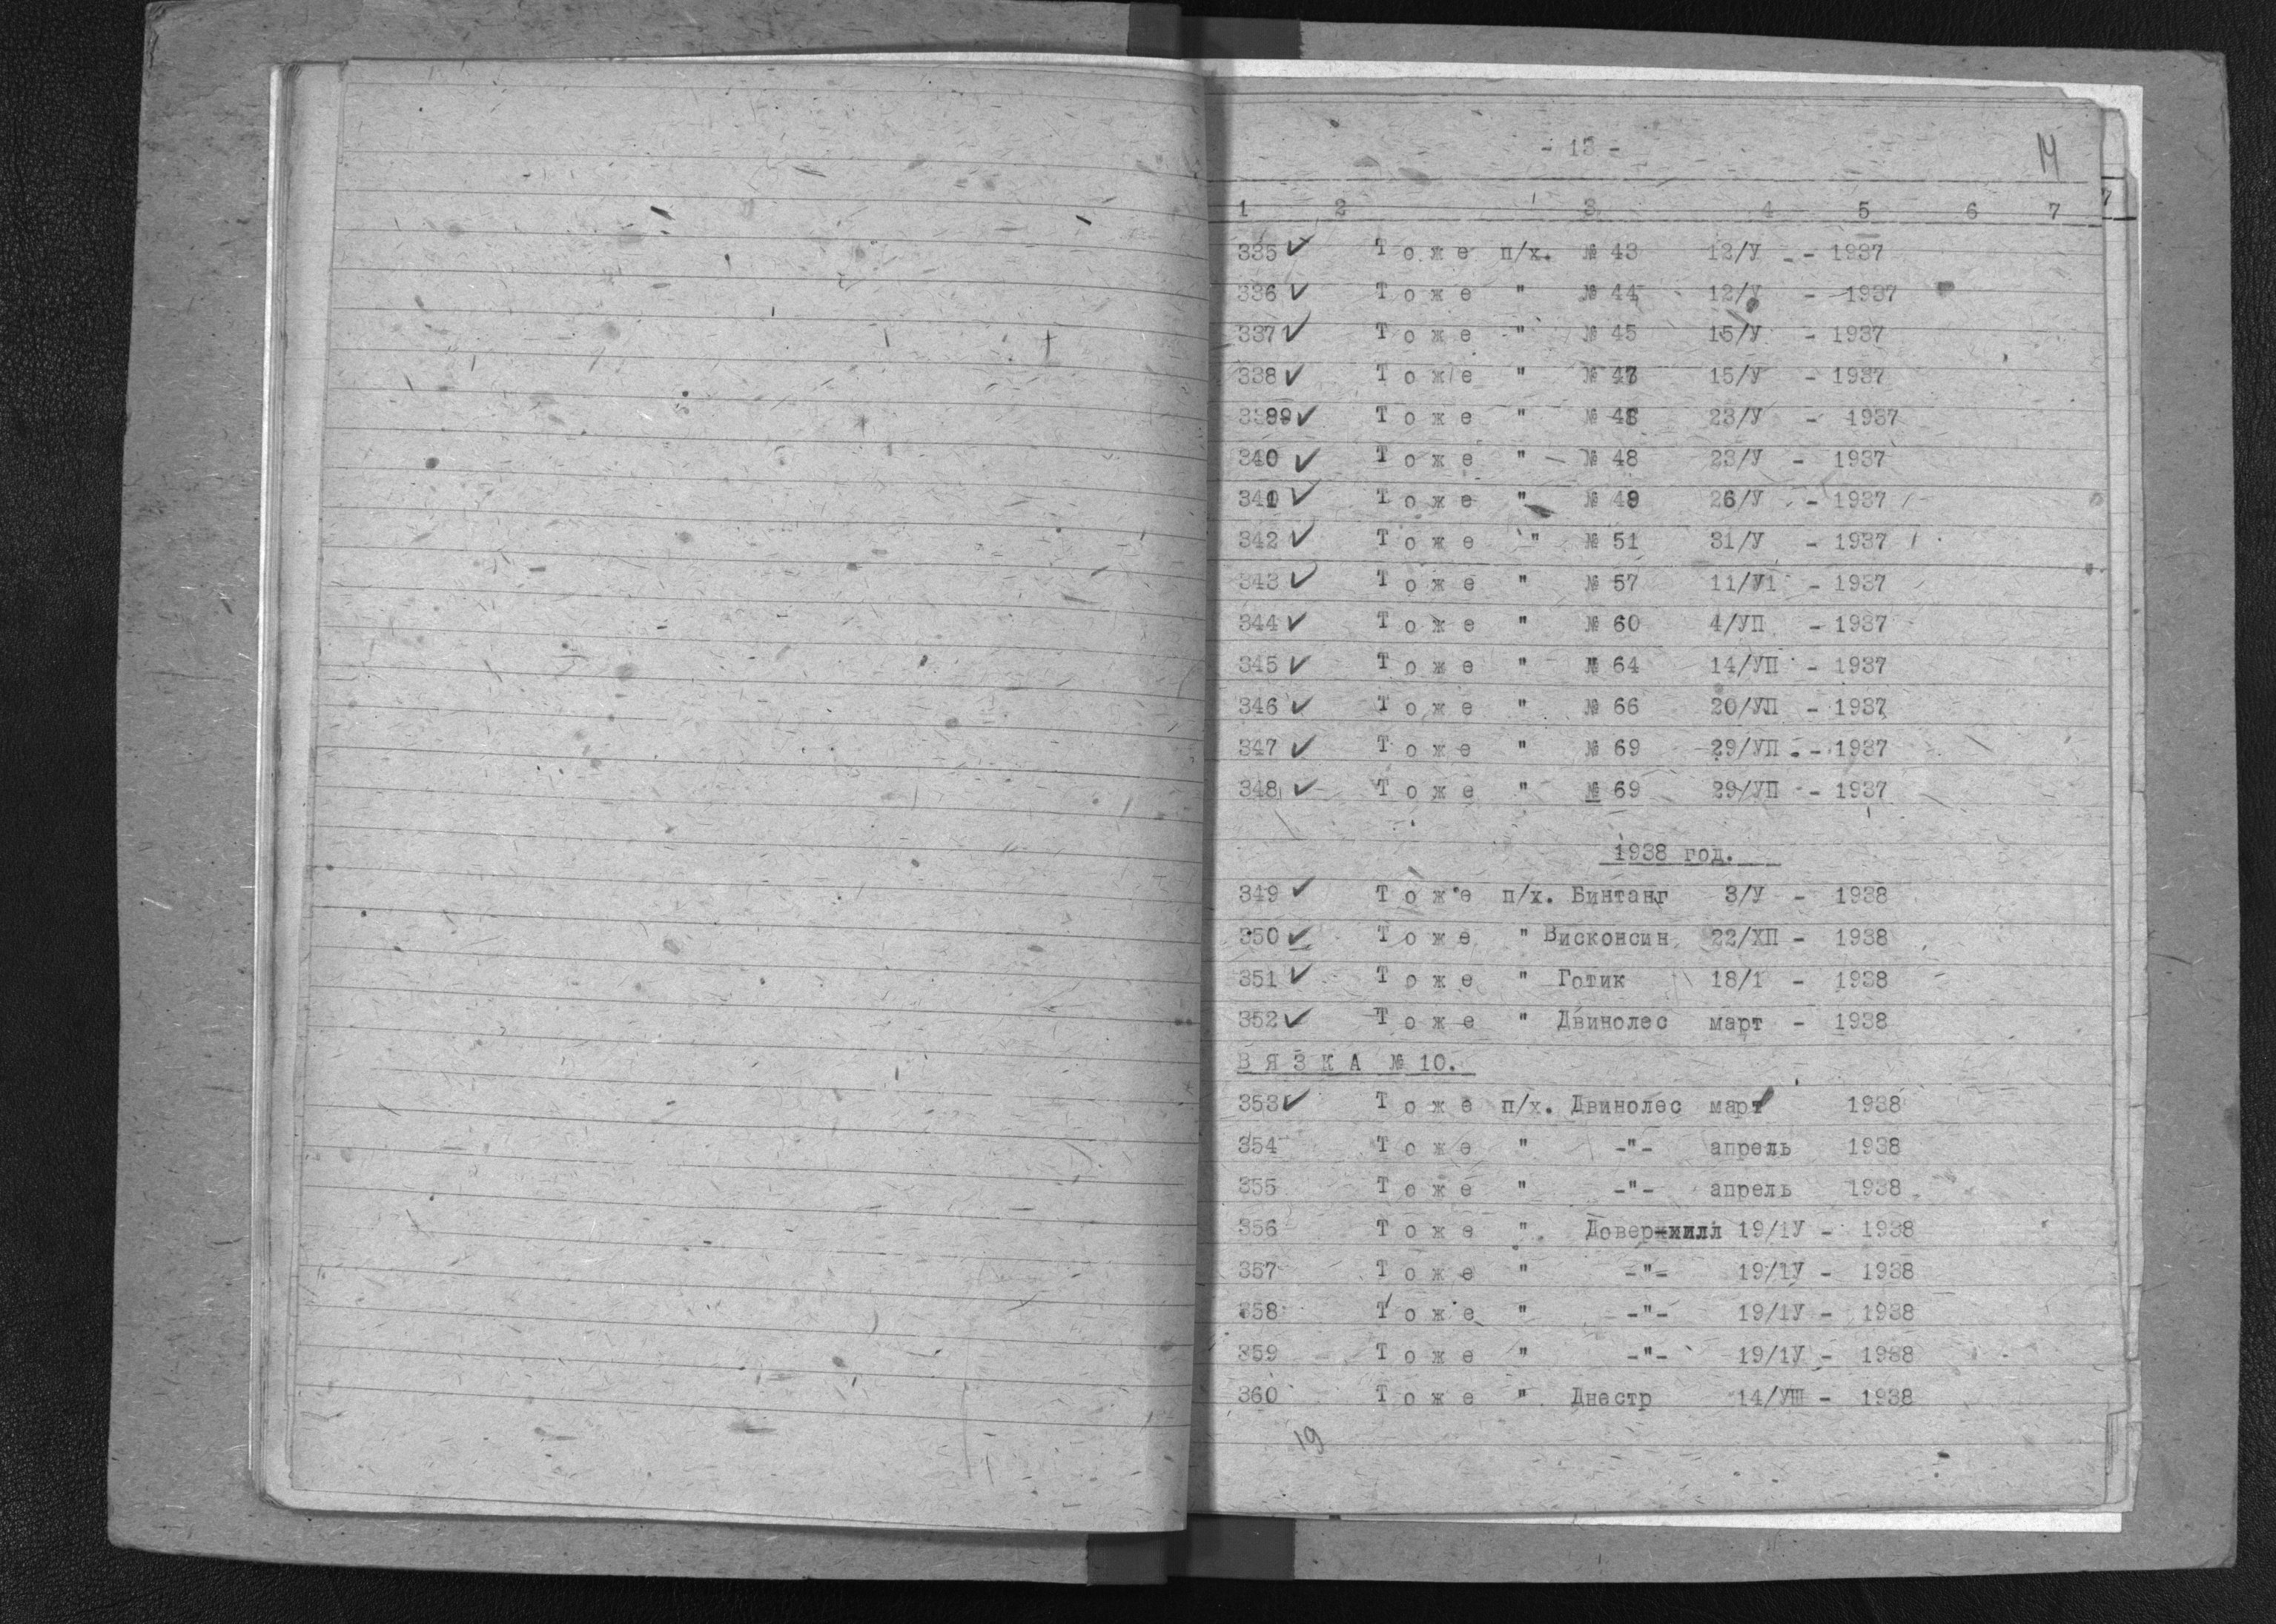 - 13 -
14
1 2 3 4 5 6 7
7
335 ✓ Т о ж е п/х. № 43 12/У - - 1937
336 ✓ Т о ж е " № 44 12/У - 1937
337 ✓ Т о ж е " № 45 15/У - 1937
338 ✓ Т о ж е " № 47 15/У - 1937
339 ✓ Т о ж е " № 48 23/У - 1937
340 ✓ Т о ж е " № 48 23/У - 1937
341 ✓ Т о ж е " № 49 26/У - 1937
342 ✓ Т о ж е " № 51 31/У - 1937
343 ✓ Т о ж е " № 57 11/У1 - 1937
344 ✓ Т о ж е " № 60 4/УП - 1937
345 ✓ Т о ж е " № 64 14/УП - 1937
346 ✓ Т о ж е " № 66 20/УП - 1937
347 ✓ Т о ж е " № 69 29/УП - 1937
348 ✓ Т о ж е " № 69 29/УП - 1937
1938 год.
349 ✓ Т о ж е п/х. Бинтанг 3/У - 1938
350 ✓ Т о ж е " Висконсин 22/ХП - 1938
351 ✓ Т о ж е " Готик 18/1 - 1938
352 ✓ Т о ж е " Двинолес март - 1938
В Я З К А № 10.
353 ✓ Т о ж е п/х. Двинолес март 1938
354 Т о ж е " -"- апрель 1938
355 Т о ж е " -"- апрель 1938
356 Т о ж е " Доверхилл 19/1У - 1938
357 Т о ж е " -"- 19/1У - 1938
358 Т о ж е " -"- 19/1У - 1938
359 Т о ж е " -"- 19/1У - 1938
360 Т о ж е " Днестр 14/УШ - 1938
19